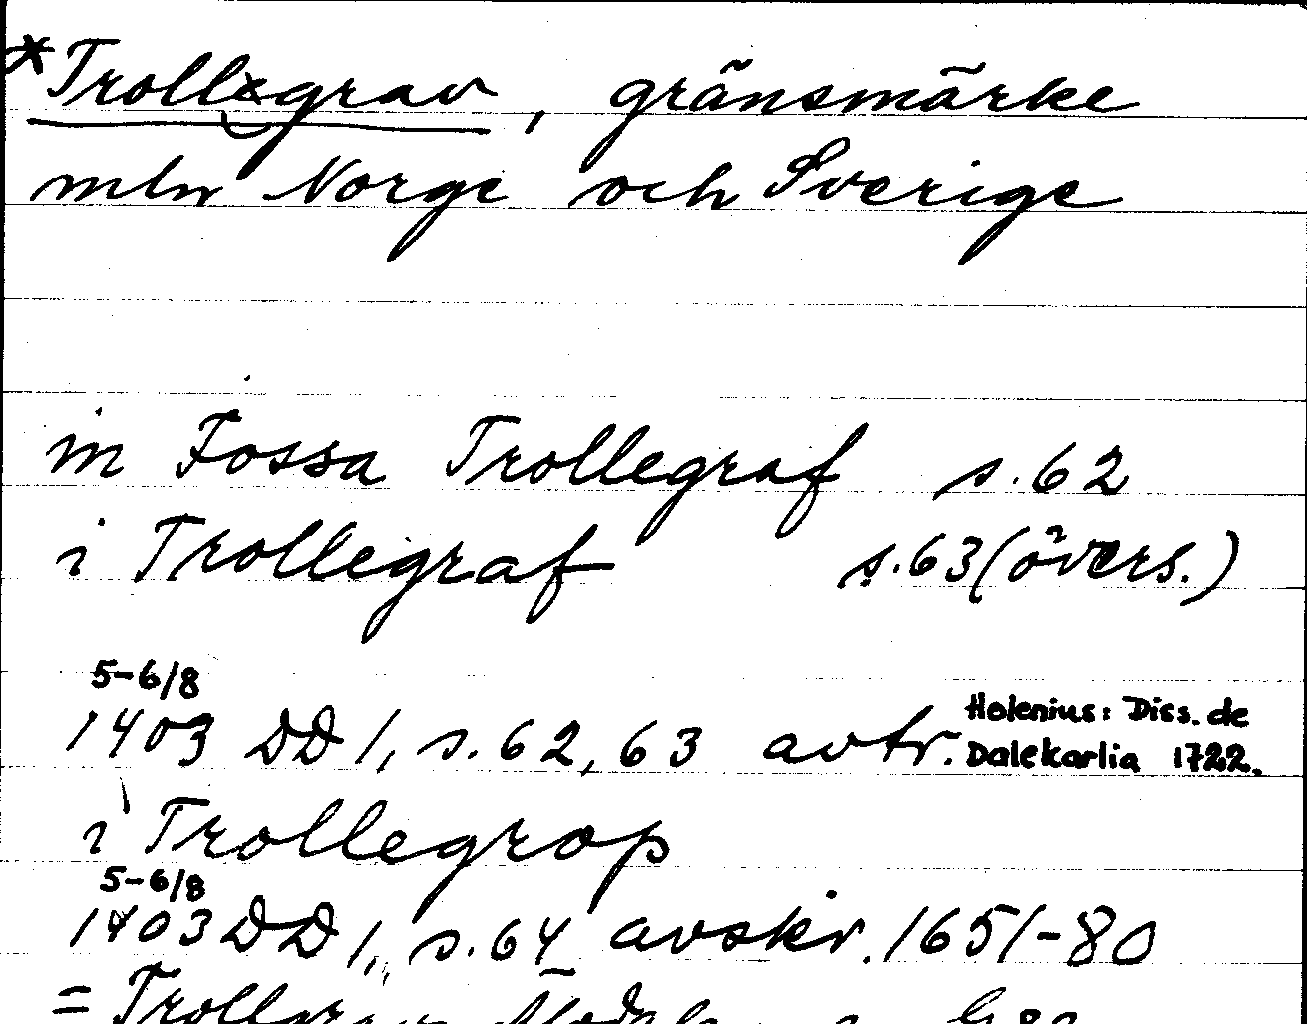 *Trollgrav, gränsmärke
mln Norge och Sverige
in Fossa Trollegraf s. 62
i Trollegraf s. 63 (övers.)
5-6/8
1403 DD 1, s. 62, 63 avtr. Holenius: Diss. de
Dalekarlia 1722.
i Trollegrop
5-6/8
1403 DD 1, s. 64 avskr. 1651-80
= Trollgrav